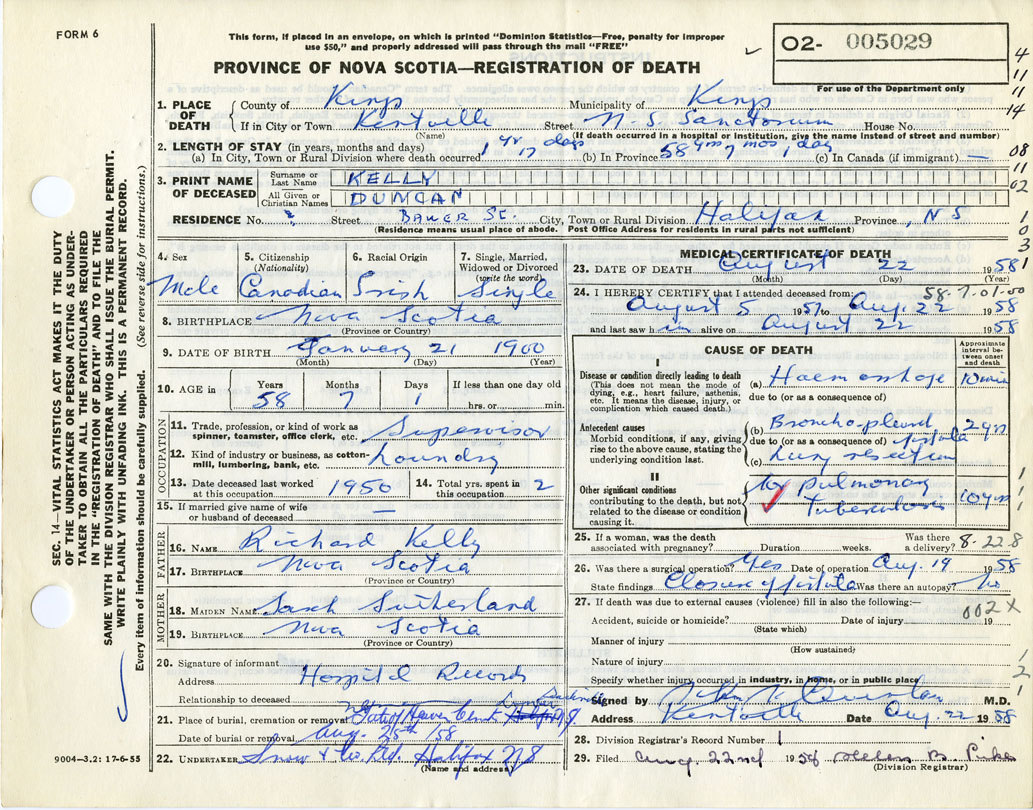 FORM 6
This form, if placed in an envelope, on which is printed "Dominion Statistics—Free, penalty for improper
use $50," and properly addressed will pass through the mail "FREE"
O2- 005029
For use of the Department only
PROVINCE OF NOVA SCOTIA—REGISTRATION OF DEATH
1. PLACE OF DEATH { County of Kings Municipality of Kings
If in City or Town Kentville Street N. S. Sanatorium House No.
(Name) (If death occurred in a hospital or institution, give the name instead of street and number)
2. LENGTH OF STAY (in years, months and days)
(a) In City, Town or Rural Division where death occurred 1 yr 17 days (b) In Province 58 yrs 7 mos 1 day (c) In Canada (if immigrant) —
3. PRINT NAME OF DECEASED Surname or Last Name KELLY
All Given or Christian Names DUNCAN
RESIDENCE No. ? Street City, Town or Rural Division Halifax Province NS
(Residence means usual place of abode. Post Office Address for residents in rural parts not sufficient)
4. Sex Male
5. Citizenship (Nationality) Canadian
6. Racial Origin Irish
7. Single, Married, Widowed or Divorced (write the word) Single
8. BIRTHPLACE Nova Scotia
(Province or Country)
9. DATE OF BIRTH January 21 1900
(Month) (Day) (Year)
10. AGE in Years 58 Months 7 Days 1 If less than one day old
hrs. or min.
OCCUPATION
11. Trade, profession, or kind of work as spinner, teamster, office clerk, etc. Supervisor
12. Kind of industry or business, as cotton-mill, lumbering, bank, etc. Laundry
13. Date deceased last worked at this occupation 1950
14. Total yrs. spent in this occupation 2
15. If married give name of wife or husband of deceased —
FATHER
16. NAME Richard Kelly
17. BIRTHPLACE Nova Scotia
(Province or Country)
MOTHER
18. MAIDEN NAME Sarah Sutherland
19. BIRTHPLACE Nova Scotia
(Province or Country)
20. Signature of informant
Address Hospital Records
Relationship to deceased
21. Place of burial, cremation or removal Gate of Heaven Cem.
Date of burial or removal Aug. 25th /58
22. UNDERTAKER Snow & Co. Ltd. Halifax NS
(Name and address)
9004—3.2: 17-6-55
MEDICAL CERTIFICATE OF DEATH
23. DATE OF DEATH August 22 1958
(Month) (Day) (Year)
24. I HEREBY CERTIFY that I attended deceased from: 58-7-01-00
August 5 1957 to Aug. 22 1958
and last saw him alive on August 22 1958
CAUSE OF DEATH
Approximate interval between onset and death
I
Disease or condition directly leading to death
(This does not mean the mode of dying, e.g., heart failure, asthenia, etc. It means the disease, injury, or complication which caused death.)
(a) Haemorrhage 10 min
due to (or as a consequence of)
Antecedent causes
Morbid conditions, if any, giving rise to the above cause, stating the underlying condition last.
(b) Bronchopleural fistula 2 yrs
due to (or as a consequence of)
(c) Lung resection
II
Other significant conditions
contributing to the death, but not related to the disease or condition causing it.
Pulmonary Tuberculosis 10 yrs
25. If a woman, was the death associated with pregnancy? Duration weeks. Was there a delivery?
8-228
26. Was there a surgical operation? Yes Date of operation Aug. 19 1958
State findings Closure of fistula Was there an autopsy? No
27. If death was due to external causes (violence) fill in also the following:—
002X
Accident, suicide or homicide? Date of injury 19
(State which)
Manner of injury
(How sustained)
Nature of injury
Specify whether injury occurred in industry, in home, or in public place
Signed by M.D.
Address Kentville Date Aug. 22 1958
28. Division Registrar's Record Number 1
29. Filed Aug 22nd 1958 Helen B.
(Division Registrar)
SEC. 14—VITAL STATISTICS ACT MAKES IT THE DUTY
OF THE UNDERTAKER OR PERSON ACTING AS UNDER-
TAKER TO OBTAIN ALL THE PARTICULARS REQUIRED
IN THE "REGISTRATION OF DEATH" AND TO FILE THE
SAME WITH THE DIVISION REGISTRAR WHO SHALL ISSUE THE BURIAL PERMIT.
WRITE PLAINLY WITH UNFADING INK. THIS IS A PERMANENT RECORD.
Every item of information should be carefully supplied. (See reverse side for instructions.)
4
11
11
14
08
11
02
1
0
3
1
1
1
1
2
1